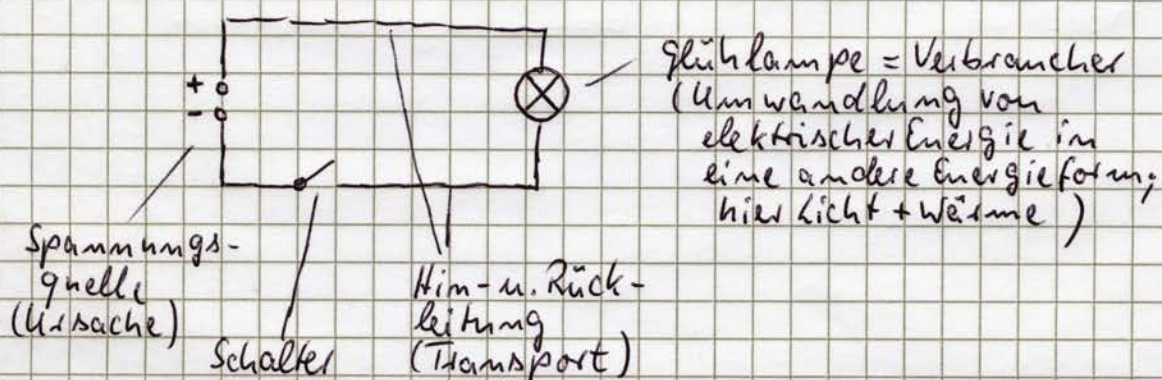 +
-
Glühlampe = Verbraucher
(Umwandlung von
elektrischer Energie in
eine andere Energieform;
hier Licht + Wärme)
Spannungs-
quelle
(Ursache)
Schalter
Hin- u. Rück-
leitung
(Transport)